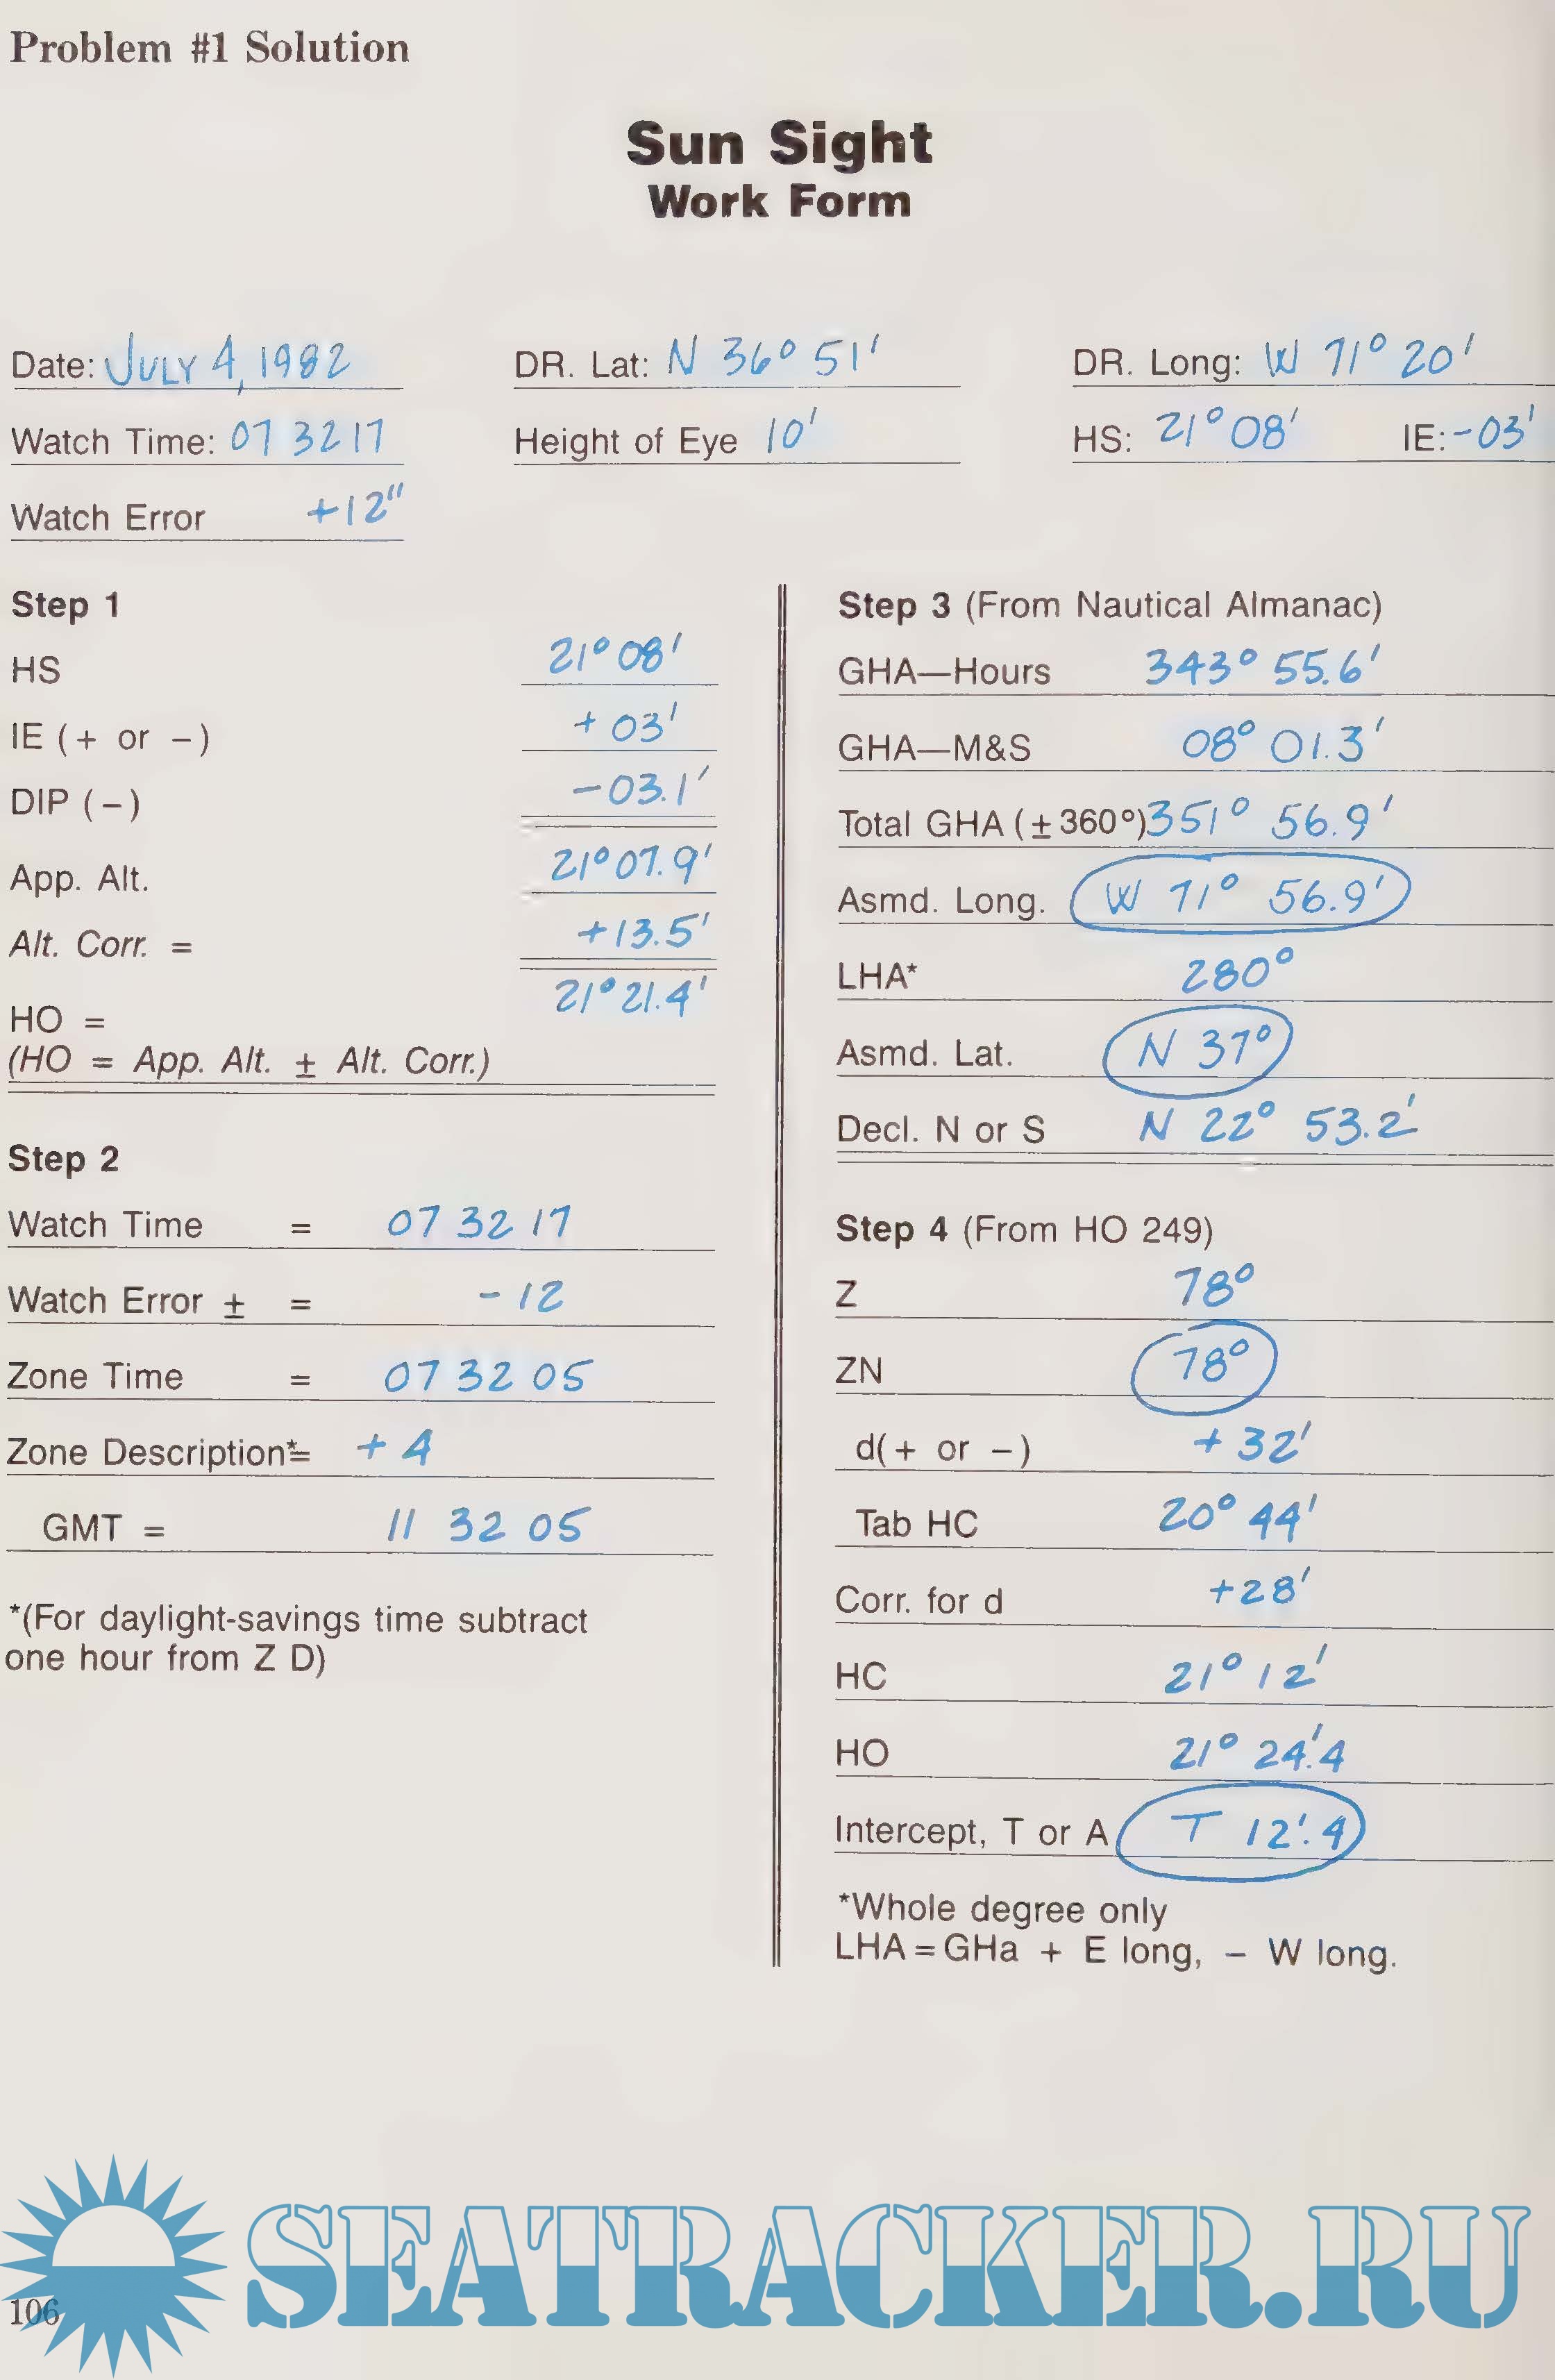 Problem #1 Solution
Sun Sight
Work Form
Date: JULY 4, 1982
DR. Lat: N 36° 51'
DR. Long: W 71° 20'
Watch Time: 07 32 17
Height of Eye 10'
HS: 21° 08' IE: -03'
Watch Error +12"
Step 1
HS 21° 08'
IE (+ or −) + 03'
DIP (−) −03.1'
App. Alt. 21° 07.9'
Alt. Corr. = +13.5'
HO = 21° 21.4'
(HO = App. Alt. ± Alt. Corr.)
Step 2
Watch Time = 07 32 17
Watch Error ± = - 12
Zone Time = 07 32 05
Zone Description*= + 4
GMT = 11 32 05
*(For daylight-savings time subtract
one hour from Z D)
Step 3 (From Nautical Almanac)
GHA—Hours 343° 55.6'
GHA—M&S 08° 01.3'
Total GHA (±360°) 351° 56.9'
Asmd. Long. W 71° 56.9'
LHA* 280°
Asmd. Lat. N 37°
Decl. N or S N 22° 53.2'
Step 4 (From HO 249)
Z 78°
ZN 78°
d(+ or −) + 32'
Tab HC 20° 44'
Corr. for d +28'
HC 21° 12'
HO 21° 24'.4
Intercept, T or A T 12'.4
*Whole degree only
LHA = GHa + E long, − W long.
SEATRACKER.RU
106